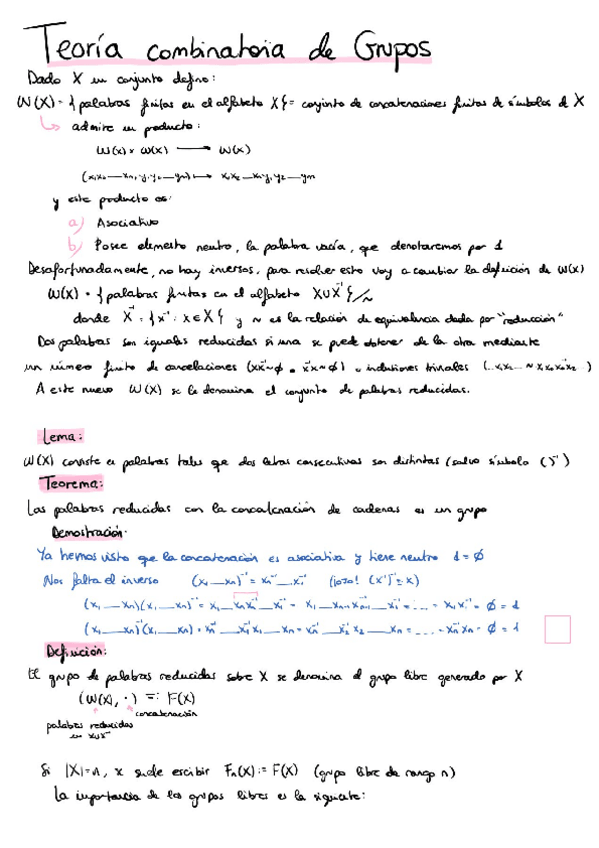 Teoría combinatoria de Grupos
Dado X un conjunto defino:
W(X) = { palabras finitas en el alfabeto X } = conjunto de concatenaciones finitas de símbolos d X
↳ admite un producto:
W(X) × W(X) ⟶ W(X)
(x₁x₂—xₙ, y₁y₂—yₘ) ⟼ x₁x₂—xₙy₁y₂—yₘ
y este producto es:
a) Asociativo
b) Posee elemento neutro, la palabra vacía, que denotaremos por 1
Desafortunadamente, no hay inversos, para resolver esto voy a cambiar la definición de W(X)
W(X) = { palabras finitas en el alfabeto X∪X⁻¹ }/~
donde X⁻¹ = { x⁻¹ : x ∈ X } y ~ es la relación de equivalencia dada por "reducción"
Dos palabras son iguales reducidas si una se puede obtener de la otra mediante
un número finito de cancelaciones (xx⁻¹~∅ o x⁻¹x~∅) o inclusiones triviales
A este nuevo W(X) se le denomina el conjunto de palabras reducidas.
Lema:
W(X) consiste en palabras tales que dos letras consecutivas son distintas (salvo símbolo ( )⁻¹)
Teorema:
Las palabras reducidas con la concatenación de cadenas es un grupo
Demostración:
Ya hemos visto que la concatenación es asociativa y tiene neutro 1 = ∅
Nos falta el inverso (x₁—xₙ)⁻¹ = xₙ⁻¹—x₁⁻¹ (¡ojo! (x⁻¹)⁻¹ = x)
(x₁—xₙ)(x₁—xₙ)⁻¹ = x₁—xₙxₙ⁻¹—x₁⁻¹ = x₁—xₙ₋₁xₙ₋₁⁻¹—x₁⁻¹ = ... = x₁x₁⁻¹ = ∅ = 1
(x₁—xₙ)⁻¹(x₁—xₙ) = xₙ⁻¹—x₁⁻¹x₁—xₙ = xₙ⁻¹—x₂⁻¹x₂—xₙ = ... = xₙ⁻¹xₙ = ∅ = 1
Definición:
El grupo de palabras reducidas sobre X se denomina el grupo libre generado por X
(W(X), ·) =: F(X)
concatenación
palabras reducidas
en X∪X⁻¹
Si |X| = n, x suele escribir Fₙ(X) := F(X) (grupo libre de rango n)
La importancia de los grupos libres es la siguiente: